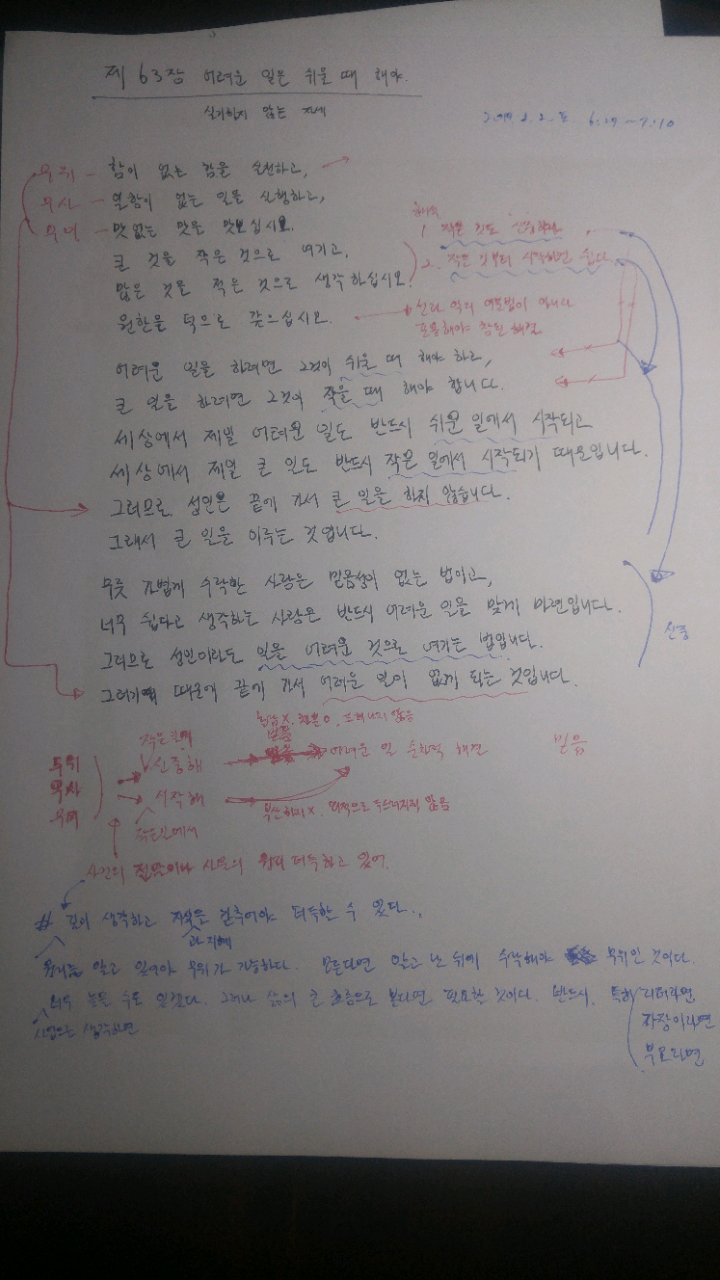 제 63장 어려운 일은 쉬울 때 해야.
실개하지 않는 자세
6:27 ~ 7:10
무위 - 함이 없는 함을 실천하고,
무사 - 일함이 없는 일을 실행하고,
무미 - 맛없는 맛을 맛보십시오.
1. 작은 것도 신중하라
큰 것을 작은 것으로 여기고,
2. 작은 것부터 시작하면 쉽다
많은 것을 적은 것으로 생각하십시오.
원한을 덕으로 갚으십시오.
선과 악의 이분법이 아니다
포용해야 참된 해결
어려운 일을 하려면 그것이 쉬울 때 해야 하고,
큰 일을 하려면 그것이 작을 때 해야 합니다.
세상에서 제일 어려운 일도 반드시 쉬운 일에서 시작되고
세상에서 제일 큰 일도 반드시 작은 일에서 시작되기 때문입니다.
그러므로 성인은 끝에 가서 큰 일을 하지 않습니다.
그래서 큰 일을 이루는 것입니다.
무릇 가볍게 수락한 사람은 믿음성이 없는 법이고,
너무 쉽다고 생각하는 사람은 반드시 어려운 일을 맞게 마련입니다.
신중
그러므로 성인이라도 일을 어려운 것으로 여기는 법입니다.
그러기 때문에 끝에 가서 어려운 일이 없게 되는 것입니다.
작은 일에
드러나지 않음
무위
신중해
어려운 일 순차적 해결
믿음
무사
시작해
무미
작은일에서
사건의 질박이나 사물의 터득하고 있어.
# 깊이 생각하고 지식을 갖추어야 터득할 수 있다.
과 지혜
알고 있어야 무위가 가능하다. 모른다면 알고 난 뒤에 수락해야 무위인 것이다.
너무 늦을 수도 있겠다. 그러나 삶의 큰 흐름으로 본다면 필요한 것이다. 반드시. 특히 리더라면
생각하면
가장이라면
부모라면